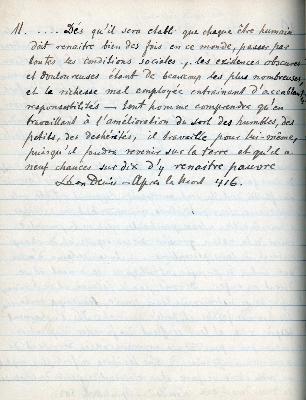 11. ..... Dès qu'il sera établi que chaque être humain
doit renaître bien des fois en ce monde, passer par
toutes les conditions sociales, les existences obscures
et douloureuses étant de beaucoup les plus nombreuses,
et la richesse mal employée entraînant d'accablantes
responsabilités – tout homme comprendra qu'en
travaillant à l'amélioration du sort des humbles, des
petits, des déshérités, il travaille pour lui-même,
puisqu'il faudra revenir sur la terre et qu'il a
neuf chances sur dix d'y renaître pauvre
Léon Denis – Après la Mort 416.